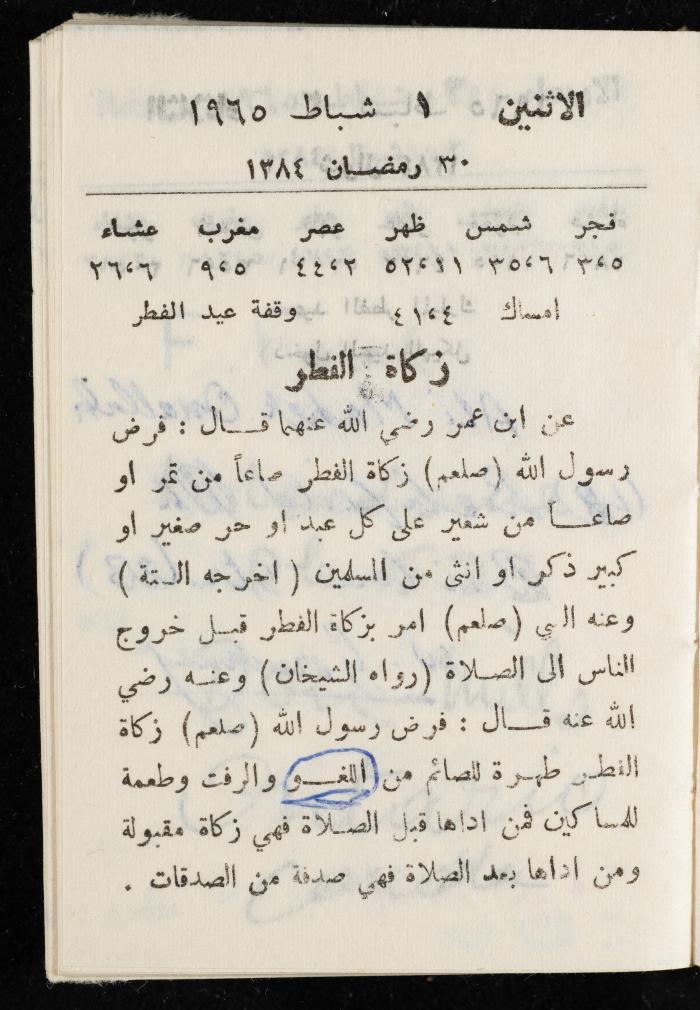 الاثنين ١ شباط ١٩٦٥
٣٠ رمضان ١٣٨٤
فجر شمس ظهر عصر مغرب عشاء
٣،٥ ٣٥،٦ ٥٢،١١ ٤٤،٢ ٩،٥ ٢٦،٦
امساك ٤١،٤ وقفة عيد الفطر
زكاة الفطر
عن ابن عمر رضي الله عنهما قال : فرض
رسول الله (صلعم) زكاة الفطر صاعاً من تمر او
صاعاً من شعير على كل عبد او حر صغير او
كبير ذكر او انثى من المسلمين (اخرجه الستة)
وعنه النبي (صلعم) امر بزكاة الفطر قبل خروج
الناس الى الصلاة (رواه الشيخان) وعنه رضي
الله عنه قال : فرض رسول الله (صلعم) زكاة
الفطر طهرة للصائم من اللغو والرفث وطعمة
للمساكين فمن اداها قبل الصلاة فهي زكاة مقبولة
ومن اداها بعد الصلاة فهي صدقة من الصدقات .